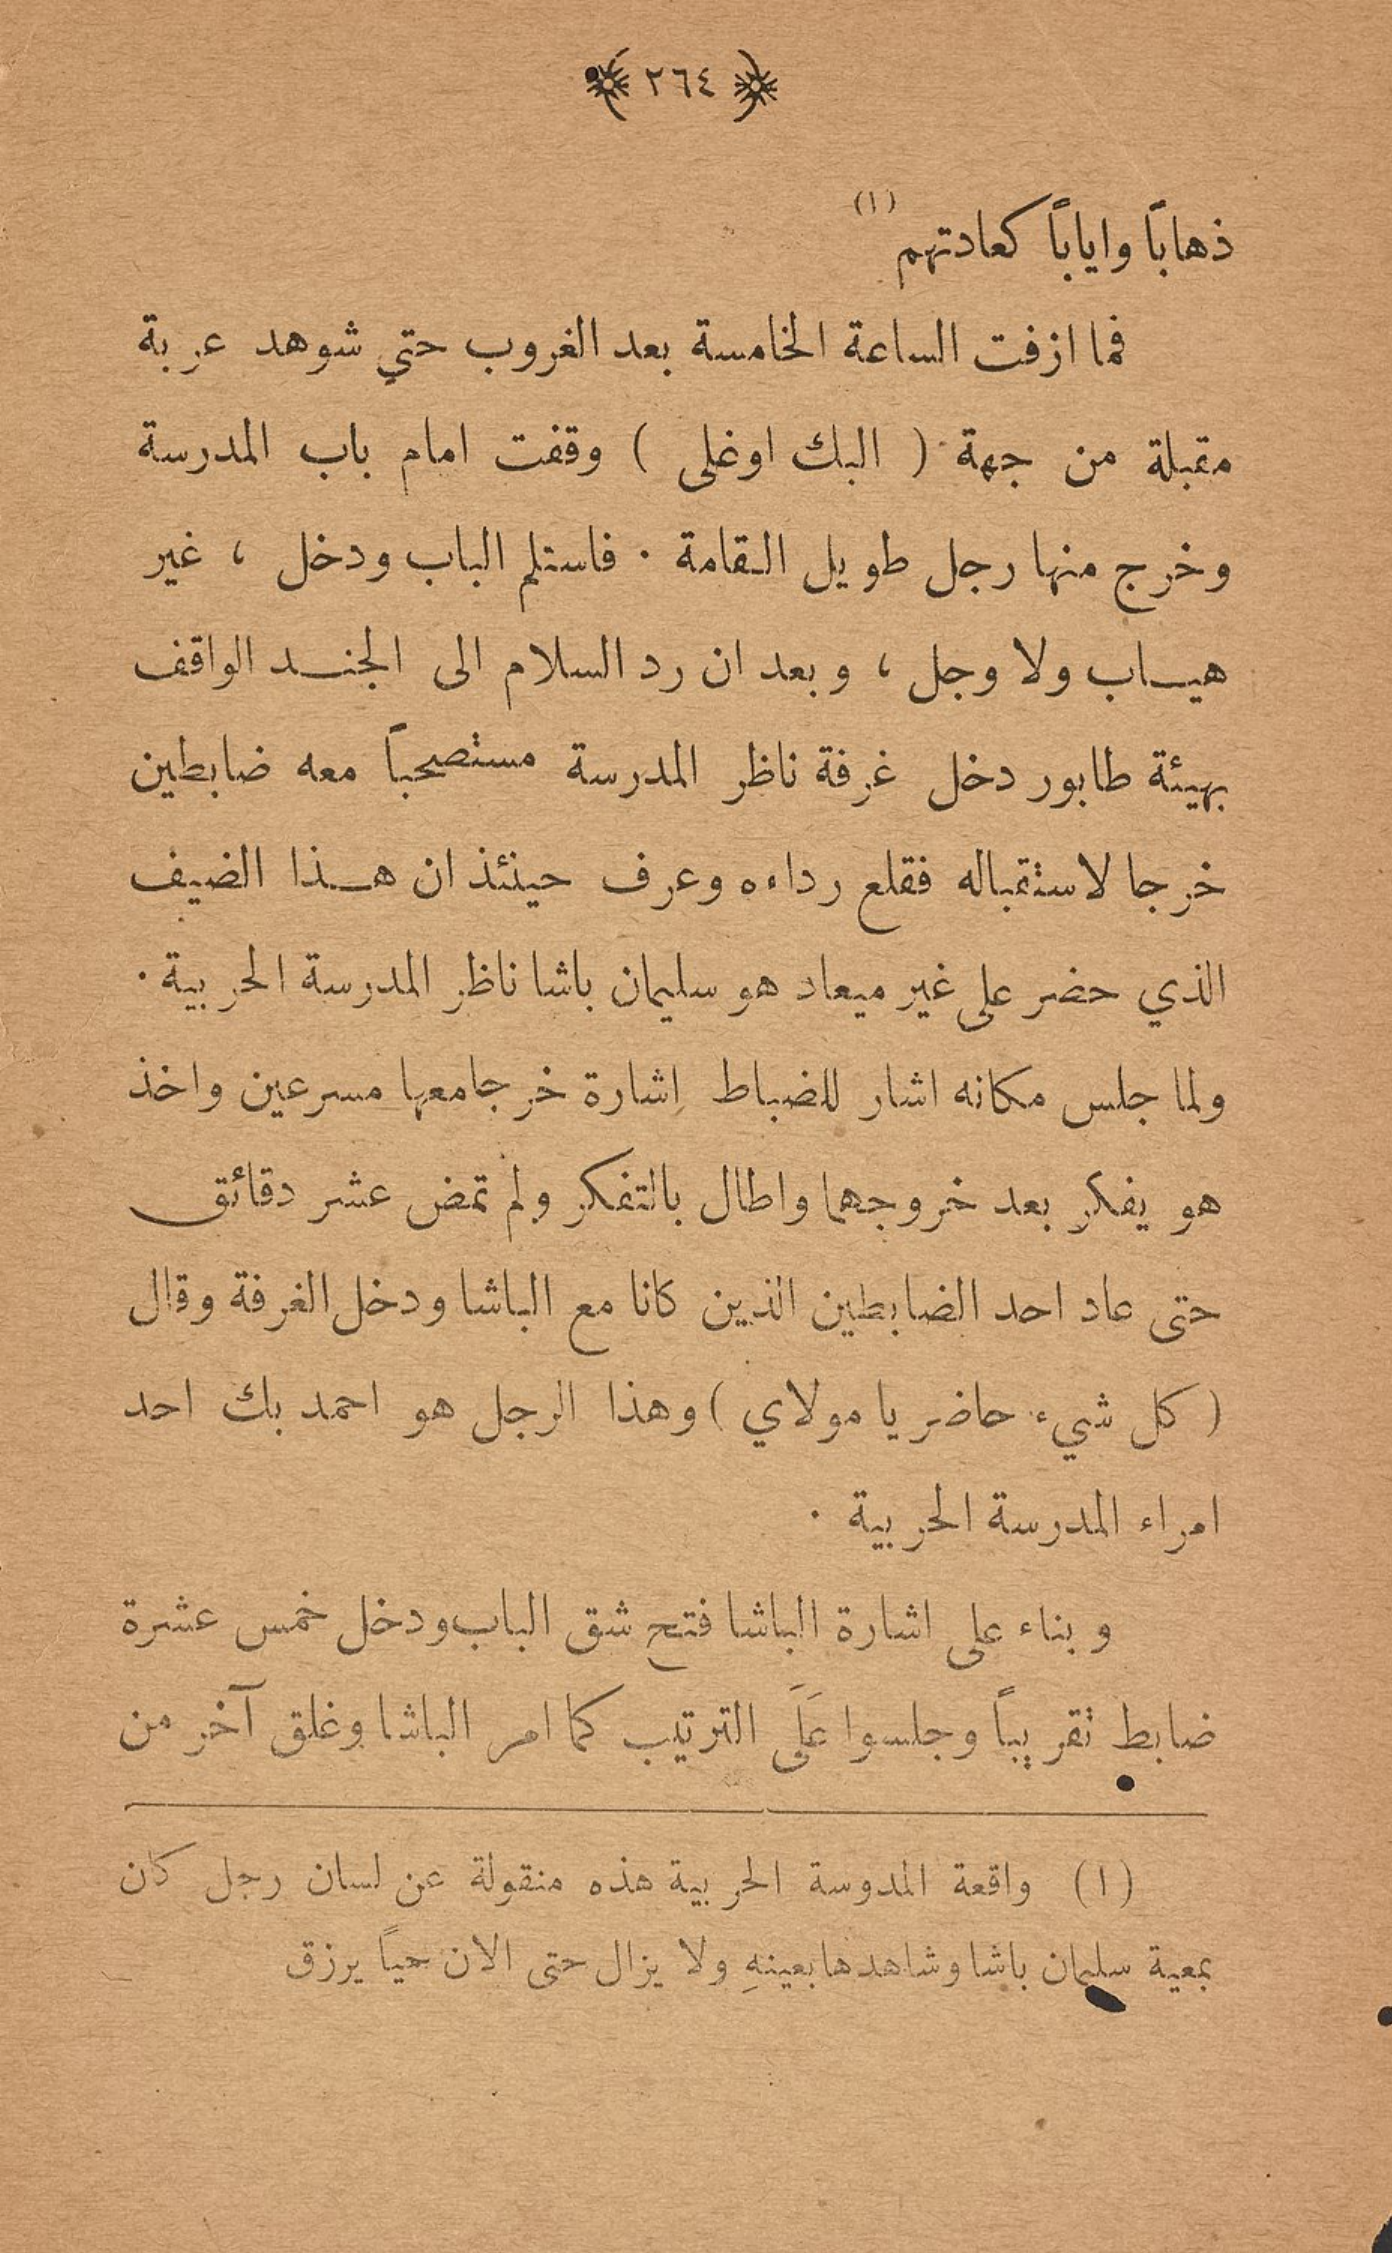 ٢٦٤
ذهاباً واياباً كعادتهم (١)
فما ازفت الساعة الخامسة بعد الغروب حتي شوهد عربة
مقبلة من جهة ( البك اوغلى ) وقفت امام باب المدرسة
وخرج منها رجل طويل القامة . فاستلم الباب ودخل ، غير
هياب ولا وجل ، وبعد ان رد السلام الى الجند الواقف
بهيئة طابور دخل غرفة ناظر المدرسة مستصحباً معه ضابطين
خرجا لاستقباله فقلع رداءه وعرف حينئذ ان هذا الضيف
الذي حضر على غير ميعاد هو سليمان باشا ناظر المدرسة الحربية .
ولما جلس مكانه اشار للضباط اشارة خرجا معها مسرعين واخذ
هو يفكر بعد خروجهما واطال بالتفكر ولم تمض عشر دقائق
حتى عاد احد الضابطين الذين كانا مع الباشا ودخل الغرفة وقال
( كل شيء حاضر يا مولاي ) وهذا الرجل هو احمد بك احد
امراء المدرسة الحربية .
وبناء على اشارة الباشا فتح شق الباب ودخل خمس عشرة
ضابط تقريباً وجلسوا عَلَى الترتيب كما امر الباشا وغلق آخر من
(١) واقعة المدوسة الحربية هذه منقولة عن لسان رجل كان
بمعية سليمان باشا وشاهدها بعينهِ ولا يزال حتى الان حياً يرزق